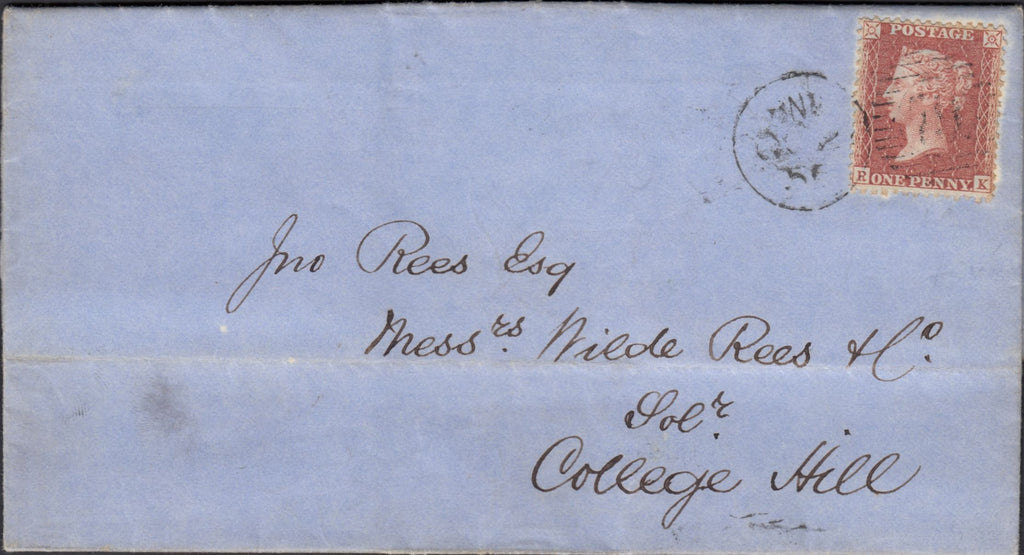 POSTAGE
R ONE PENNY K
Jno Rees Esq
Messrs. Wilde Rees & Co.
Solr.
College Hill